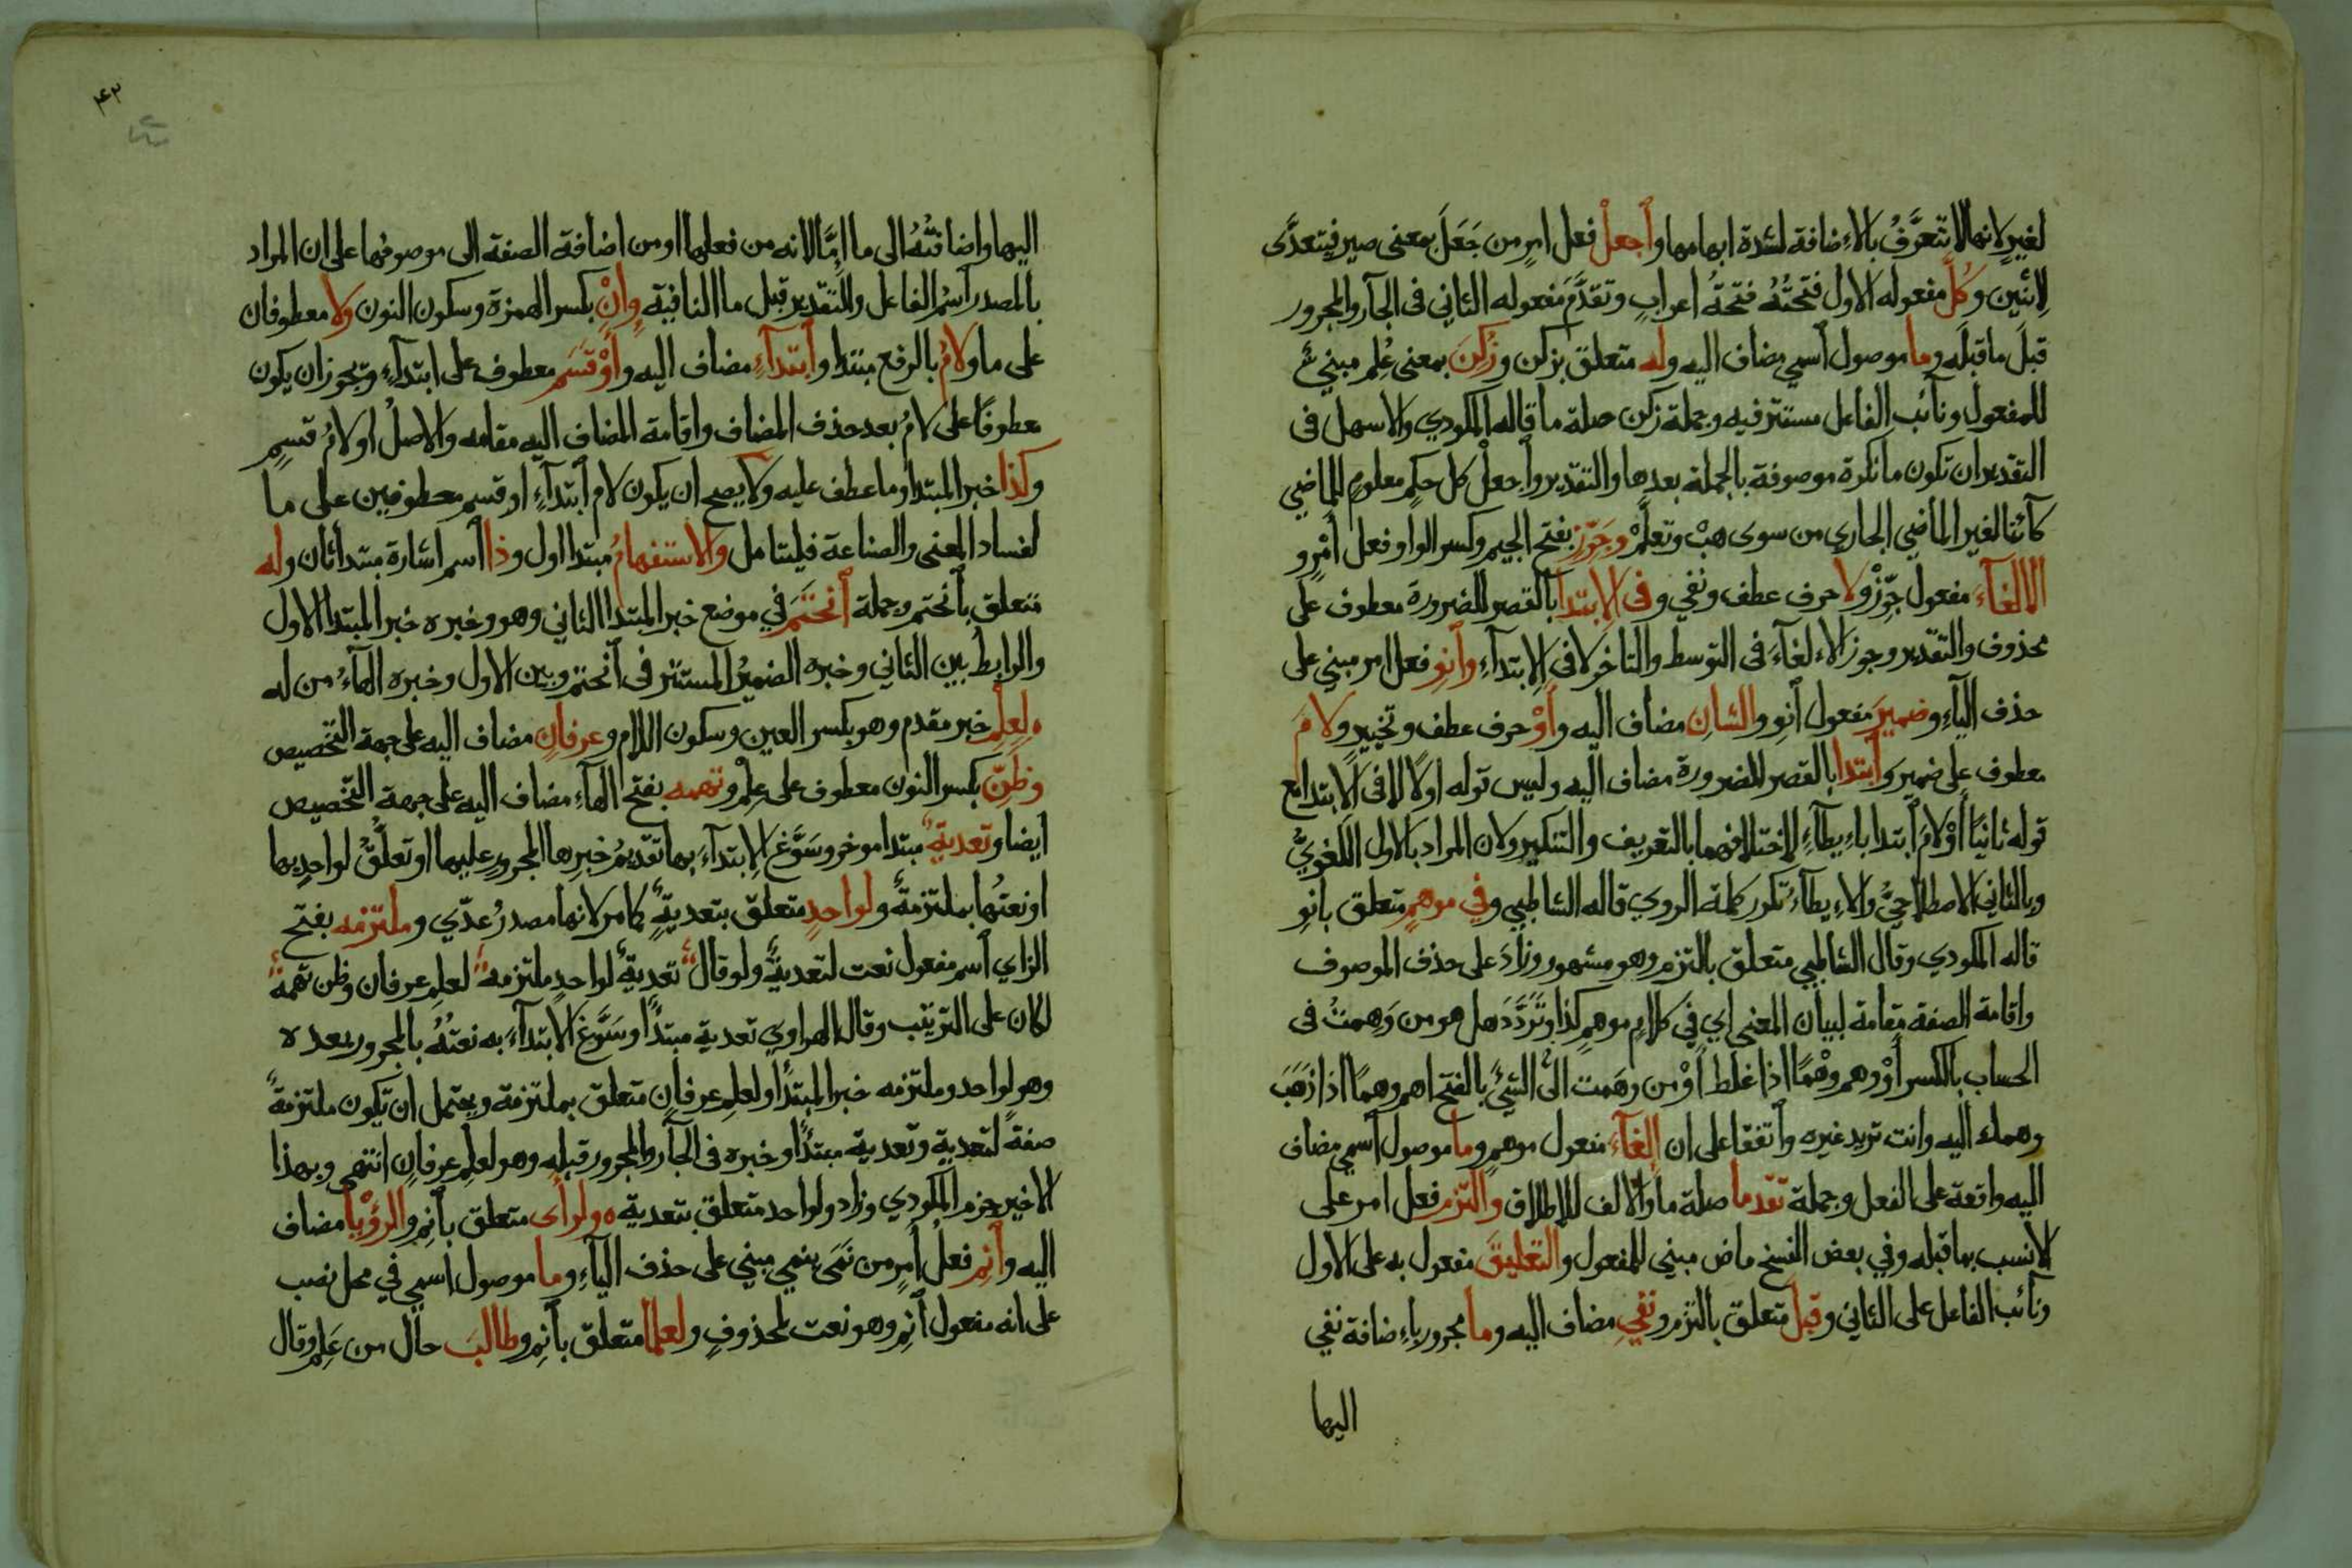 لغيرٍ لانها لا تتعرَّفُ بالاءِضافة لشدة ابهامها وٱجعلْ فعل امرٍ من جَعَلَ بمعنى صير فيتعدَّى
لإثنين وكُلَّ مفعوله الاول فتحتُهُ فتحةُ اعرابٍ وتقدَّمَ مفعوله الثاني فى الجآر والمجرور
قبلَ ما قبلَه وما موصول ٱسمي مضاف اليه وله متعلق بزكن وزُكِنَ بمعنى عُلِم مبني
للمفعول ونآئب الفاعل مستتر فيه وجملة زكن صلة ما قاله المكودي والاسهل فى
التقدير ان تكون ما نكرة موصوفة بالجملة بعدها والتقدير وٱجعلْ كل حكمٍ معلومٍ للماضي
كآئنا لغير الماضي الجاري من سوى هبْ وتعلَّمْ وجَوِّزِ بفتح الجيم وكسر الواو فعل أمْرٍ و
الالغآءَ مفعول جوِّزْ ولا حرف عطف ونفي وفى الابتدا بالقصر للضرورة معطوف على
محذوف والتقدير وجوز الاءلغآءَ فى التوسط والتاخر لا فى الإبتدآءِ وٱنوِ فعل امر مبني على
حذف اليآءِ وضميرَ مفعول ٱنوِ والشانِ مضاف اليه وأوْ حرف عطف وتخييرٍ ولامَ
معطوف على ضمير وٱبتدا بالقصر للضرورة مضاف اليه وليس قوله اولا لا فى الابتدا مع
قوله ثانيًا أوْ لامَ ٱبتدا باءِيطآءٍ لاختلافهما بالتعريف والتنكير ولان المراد بالاول اللغويُّ
وبالثاني الاصطلاحيُّ والاءِيطآءُ تكرر كلمة الروي قاله الشاطبي وفي موهمٍ متعلق بانوِ
قاله المكودي وقال الشاطبي متعلق بالتزم وهو مشهور وزادَ على حذف الموصوف
واقامة الصفة مقامه لبيان المعنى اي فى كلامٍ موهمٍ كذا وتَرَدَّدَ هل هو من وَهِمتُ فى
الحساب بالكسر أوْوهم وهْمًا اذا غلط أوْ من وهَمت الى الشيءِ بالفتح اهم وهمًا اذا ذهَبَ
وهمك اليه وانت تريد غيره وٱتفقا على ان إلغآءَ مفعول موهمٍ وما موصول ٱسمي مضاف
اليه واقعة على الفعل وجملة تقدما صلة ما والالف للاطلاق وٱلتزم فعل امر على
الانسب بما قبله وفي بعض النسخ ماض مبني للمفعول والتعليقَ مفعول به على الاول
ونآئب الفاعل على الثاني وقبلَ متعلق بالتزم ونفيِ مضاف اليه وما مجرور باءِضافة نفي
اليها
۴۲
اليها واضافتُهُ الى ما إمَّا لانه من فعلها او من اضافة الصفة الى موصوفها على ان المراد
بالمصدر ٱسمُ الفاعل والتقدير قبل ما النافية وإنْ بكسر الهمزة وسكون النون ولا معطوفان
على ما ولامُ بالرفع مبتدا وٱبتدآءٍ مضاف اليه وأوْ قسَمٍ معطوف على ابتدآءٍ ويجوز ان يكون
معطوفًا على لامُ بعد حذف المضاف واقامة المضاف اليه مقامه والاصلُ او لامُ قسمٍ
وكذا خبر المبتدا وما عطف عليه ولا يصح ان يكون لام ٱبتدآءٍ او قسم معطوفين على ما
لفساد المعنى والصناعة فليتامل والاستفهامُ مبتدا اول وذا ٱسم اشارة مبتدا ثان وله
متعلق بٱنحتم وجملة ٱنحَتَمَ في موضع خبر المبتدا الثاني وهو وخبره خبر المبتدا الاول
والرابطُ بين الثاني وخبره الضميرُ المستتر فى ٱنحتم وبين الاول وخبره الهآءُ من له
ه لعلمِ خبر مقدم وهو بكسر العين وسكون اللام وعرفانٍ مضاف اليه على جهة التخصيص
وظنِّ بكسر النون معطوف على علم وتهمه بفتح الهآءِ مضاف اليه على جهة التخصيص
ايضا وتعديةٌ مبتدا موخر وسَوَّغ الابتدآءَ بها تقديمُ خبرها المجرورِ عليها او تعلُّقُ لواحدٍ بها
او نعتُها بملتزمةٌ ولواحدٍ متعلق بتعديةٌ كما مر لانها مصدرُ عدّي وملتزمه بفتح
الزاي ٱسم مفعول نعت لتعديةٌ ولو قال تعديةٌ لواحدٍ ملتزمه لعلمِ عرفان وظن تهمة
لكان على الترتيب وقال الهراوي تعدية مبتدًا وسَوَّغ الابتدآءَ به نعتُهُ بالمجرور بعده
وهو لواحد وملتزمه خبر المبتدًا ولعلمِ عرفانٍ متعلق بملتزمة ويحتمل ان تكون ملتزمةٌ
صفةً لتعدية وتعدية مبتدًا وخبره فى الجآر والمجرور قبله وهو لعلمِ عرفانٍ انتهى وبهذا
الاخير جزم المكودي وزاد ولواحد متعلق بتعدية ه ولرأى متعلق بٱنمِ والرؤْيا مضاف
اليه وٱنمِ فعل أمرٍ من نَمَى ينمي مبني على حذف اليآءِ وما موصول ٱسمي في محل نصب
على انه مفعول ٱنمِ وهو نعت لمحذوفٍ ولعلما متعلق بٱنمِ وطالبَ حال من عَلِم وقال